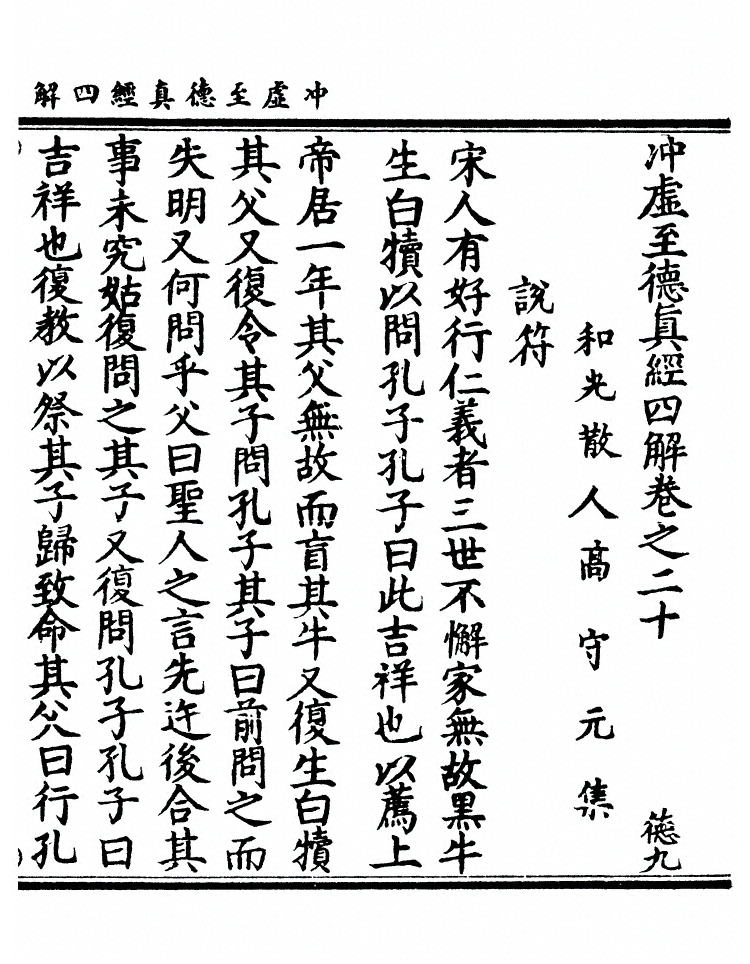 冲虛至德真經四解
冲虛至德真經四解卷之二十 德九
和光散人高守元集
說符
宋人有好行仁義者三世不懈家無故黑牛
生白犢以問孔子孔子曰此吉祥也以薦上
帝居一年其父無故而盲其牛又復生白犢
其父又復令其子問孔子其子曰前問之而
失明又何問乎父曰聖人之言先迕後合其
事未究姑復問之其子又復問孔子孔子曰
吉祥也復教以祭其子歸致命其父曰行孔